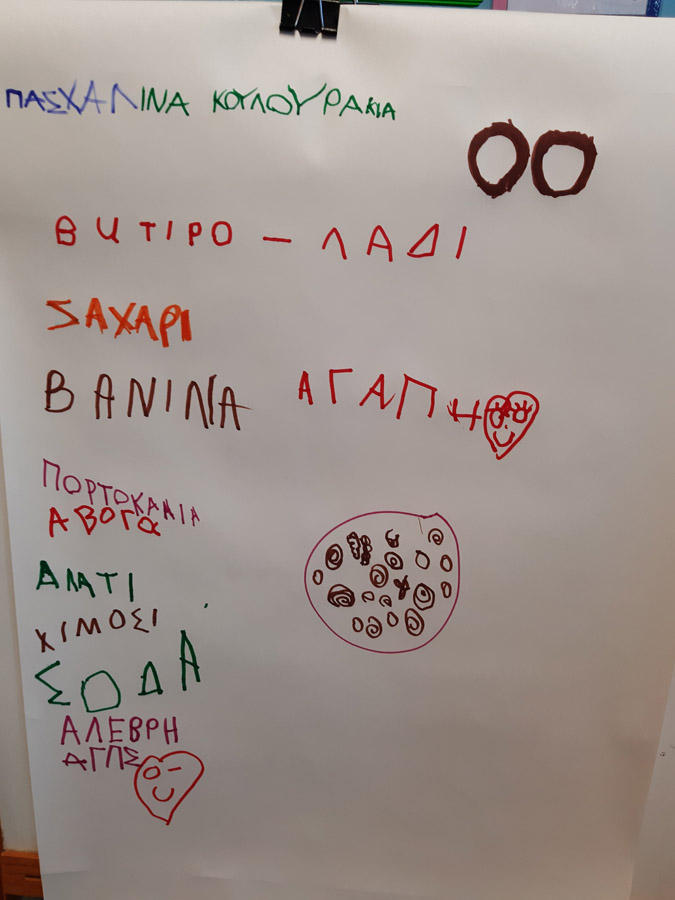 ΠΑΣΧΑΛΙΝΑ ΚΟΥΛΟΥΡΑΚΙΑ
ΒUΤΙΡΟ – ΛΑΔΙ
SΑΧΑΡΙ
ΒΑΝΙΝΑ ΑΓΑΠΗ
ΠΟΡΤΟΚΑΛΙΑ
ΑΒΟΓΑ
ΑΛΑΤΙ
ΧΙΜΟΣΙ
ΣΟΔΑ
ΑΛΕΒΡΗ